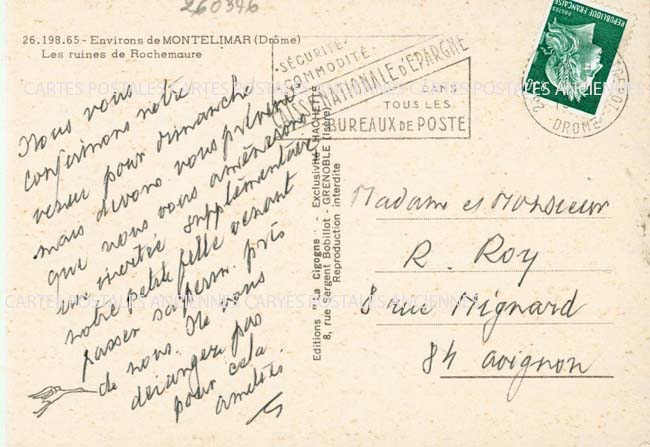 260346
26.198.65 - Environs de MONTELIMAR (Drôme)
Les ruines de Rochemaure
Nous vous
confirmons notre
venue pour dimanche
mais devons vous prévenir
que nous vous amènerons
un invité supplémentaire
notre petite fille venant
passer sa perm. près
de nous. Ne vous
dérangez pas
pour cela
amitiés
Editions "La Cigogne" - Exclusivité HACHETTE
8, rue Sergent Bobillot - GRENOBLE (Isère)
Reproduction interdite
SÉCURITÉ
COMMODITÉ
CAISSE NATIONALE D'EPARGNE
DANS
TOUS LES
BUREAUX DE POSTE
REPUBLIQUE FRANCAISE
DROME
Madame et Monsieur
R. Roy
8 rue Mignard
84 avignon
CARTES POSTALES ANCIENNES